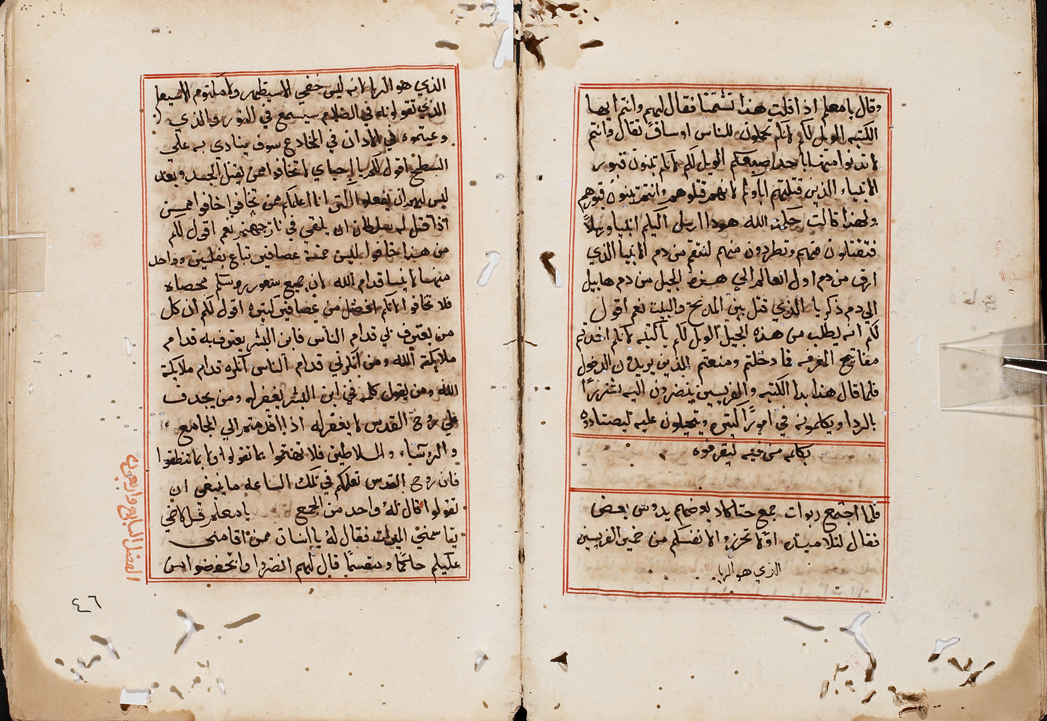 وقال يا معلم اذا قلت هذا تشتمنا فقال لهم وانتم ايها
الكتبه الويل لكم لانكم تحملون للناس اوساق ثقال وانتم
لا تدنوا منها باحد اصابعكم الويل لكم لانكم تبنون قبور
الانبياء الذين قتلهم اباوكم لانهم قتلوهم وانتم تبنون قبورهم
ولهذا قالت حكمة الله هودا ارسل اليكم انبيا ورسلا
فتقتلون منهم وتطردون منهم لينتقم من دم الانبيا الذي
اهرق من دم اول العالم الي هذه الجيل من دم هابيل
الي دم ذكريا الذي قتل بين المدبح والبيت نعم اقول
لكم انه يطلب من هذه الجيل الويل لكم يا كتبه لانكم اخدتم
مفاتيح المعرفه فما دخلتم ومنعتم الذين يريدون الدخول
فلما قال هذا بدا الكتبه والفريسين
بالردا ويكلمونه في امورًا كتيره ويتحيلون عليه ليصتادوه
بكلمه من فيه ليقرفوه
فلما اجتمع ربوات جمع حتا كاد بعضهم يدوس بعض
فقال لتلاميده اولا تحرزو لانفسكم من خمير الفريسين
الذي هو الريا
الذي هو الريا لانه ليس خفي الا سيظهر ولا مكتوم الا سيعلم
الذي تقولونه في الظلام سيسمع في النور والذي
وعيتموه في الاذان في المخادع سوف ينادى به على
السطح اقول لكم يا احباي لا تخافوا ممن يقتل الجسد وبعد
ليس لهم ان يفعلوا اكثر انا اعلمكم ممن تخافوا خافوا ممن
اذا قتل له سلطان ان يلقي في نار جهنم نعم اقول لكم
من هذا خافوا اليس خمسة عصافير تباع بفلسين وواحد
منها لا ينسا قدام الله لان جميع شعور روسكم محصاه
فلا تخافوا لانكم افضل من عصافير كتيره اقول لكم ان كل
من يعترف بي قدام الناس فابن البشر يعترف به قدام
ملايكة الله ومن انكرني قدام الناس انكره قدام ملايكة
الله ومن يقول كلمه في ابن البشر يغفر له ومن يجدف
علي روح القدس لا يغفر له اذا قدمتم الي الجامع
والروساء والسلاطين فلا تهتموا بما تقولوا ولا بما تنطقوا
فان روح القدس تعلمكم في تلك الساعه ما ينبغي ان
تقولوا قال له واحد من الجمع يا معلم قل لاخي
يقاسمني الميرات فقال له يا انسان من اقامني
عليكم حاكمًا ومقسمًا قال لهم انضروا وتحفضوا من
الفصل السابع واربعون
٤٦